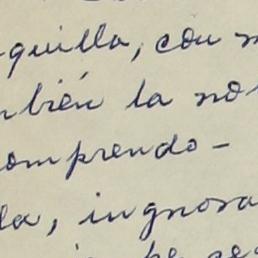 quilla, con m
mbién la no
omprendo –
la, ingnora